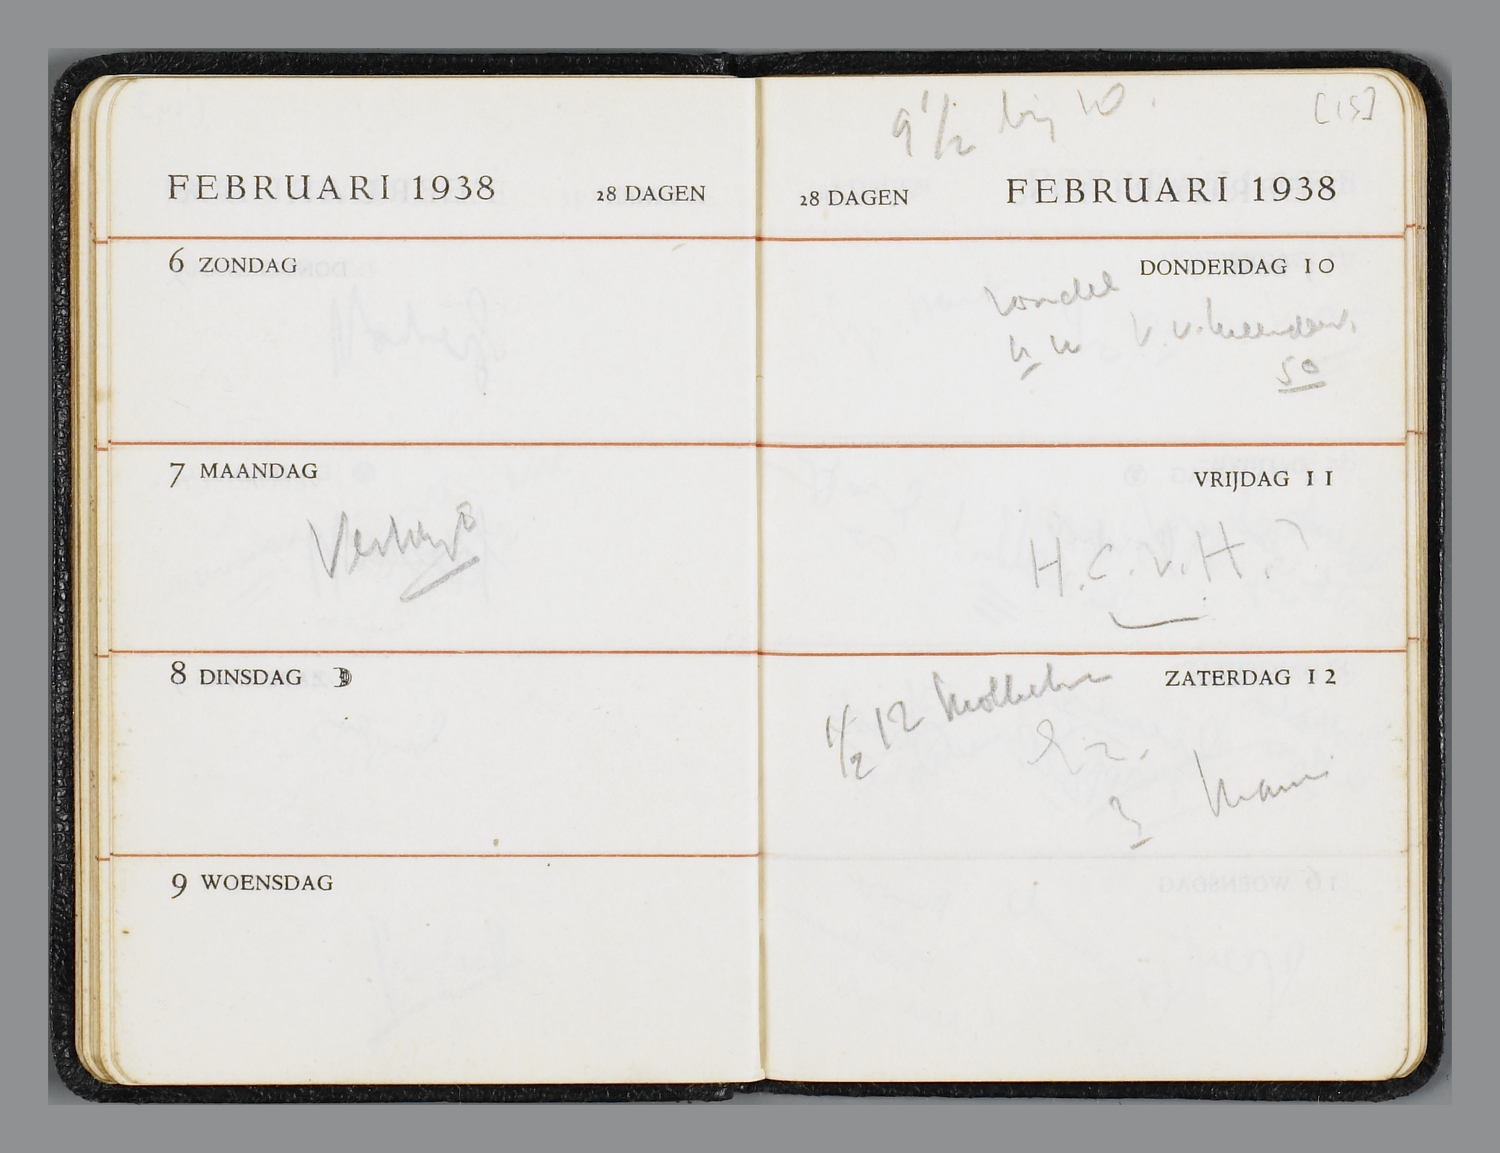 FEBRUARI 1938 28 DAGEN
6 ZONDAG
7 MAANDAG
8 DINSDAG
9 WOENSDAG
9 1/2 bij W.
[15]
28 DAGEN FEBRUARI 1938
DONDERDAG 10
50
VRIJDAG 11
H.C.v.H.?
ZATERDAG 12
1/2 12
3